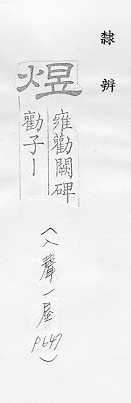 隸辨
煜
雍勸闕碑
勸子ー
(入聲一屋
P.647)